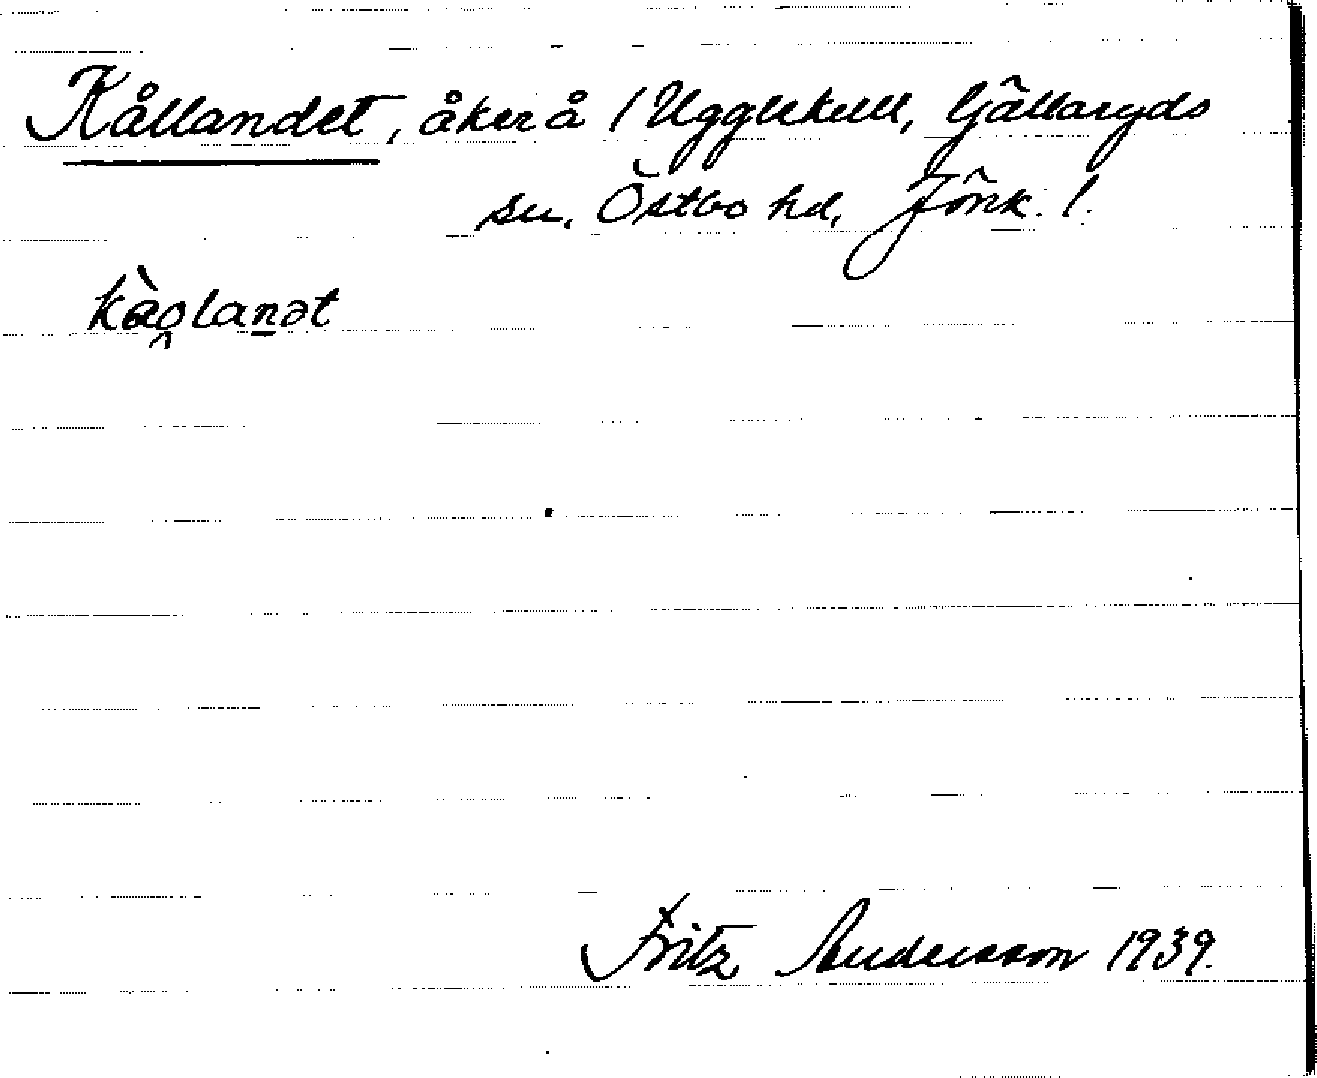 Kållandet, åker å / Ugglekull, Gällaryds
sn. Östbo hd, Jönk. l.
kàolandt
Fritz Andersson 1939.